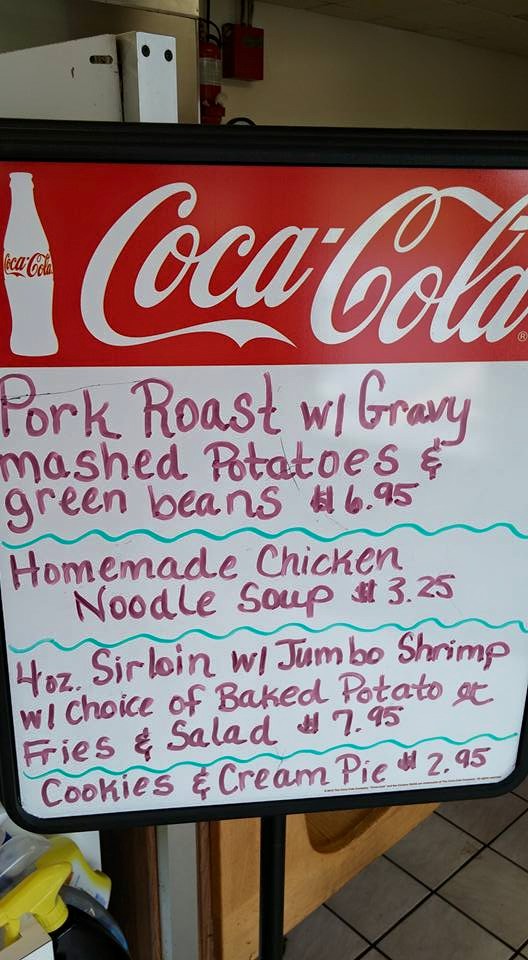 Coca-Cola
Coca-Cola
Pork Roast w/ Gravy
mashed Potatoes &
green beans $6.95
Homemade Chicken
Noodle Soup $3.25
4oz. Sirloin w/ Jumbo Shrimp
w/ Choice of Baked Potato or
Fries & Salad $7.95
Cookies & Cream Pie $2.95